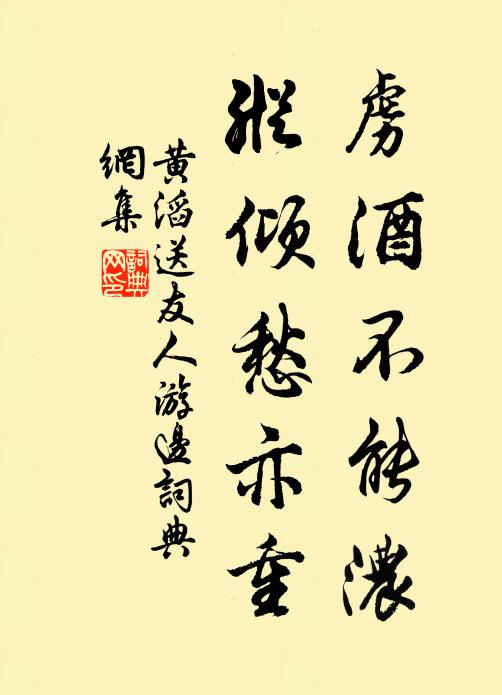 虜酒不能濃
縱傾愁亦重
黃滔送友人游邊詞典
網集
詞典
网印